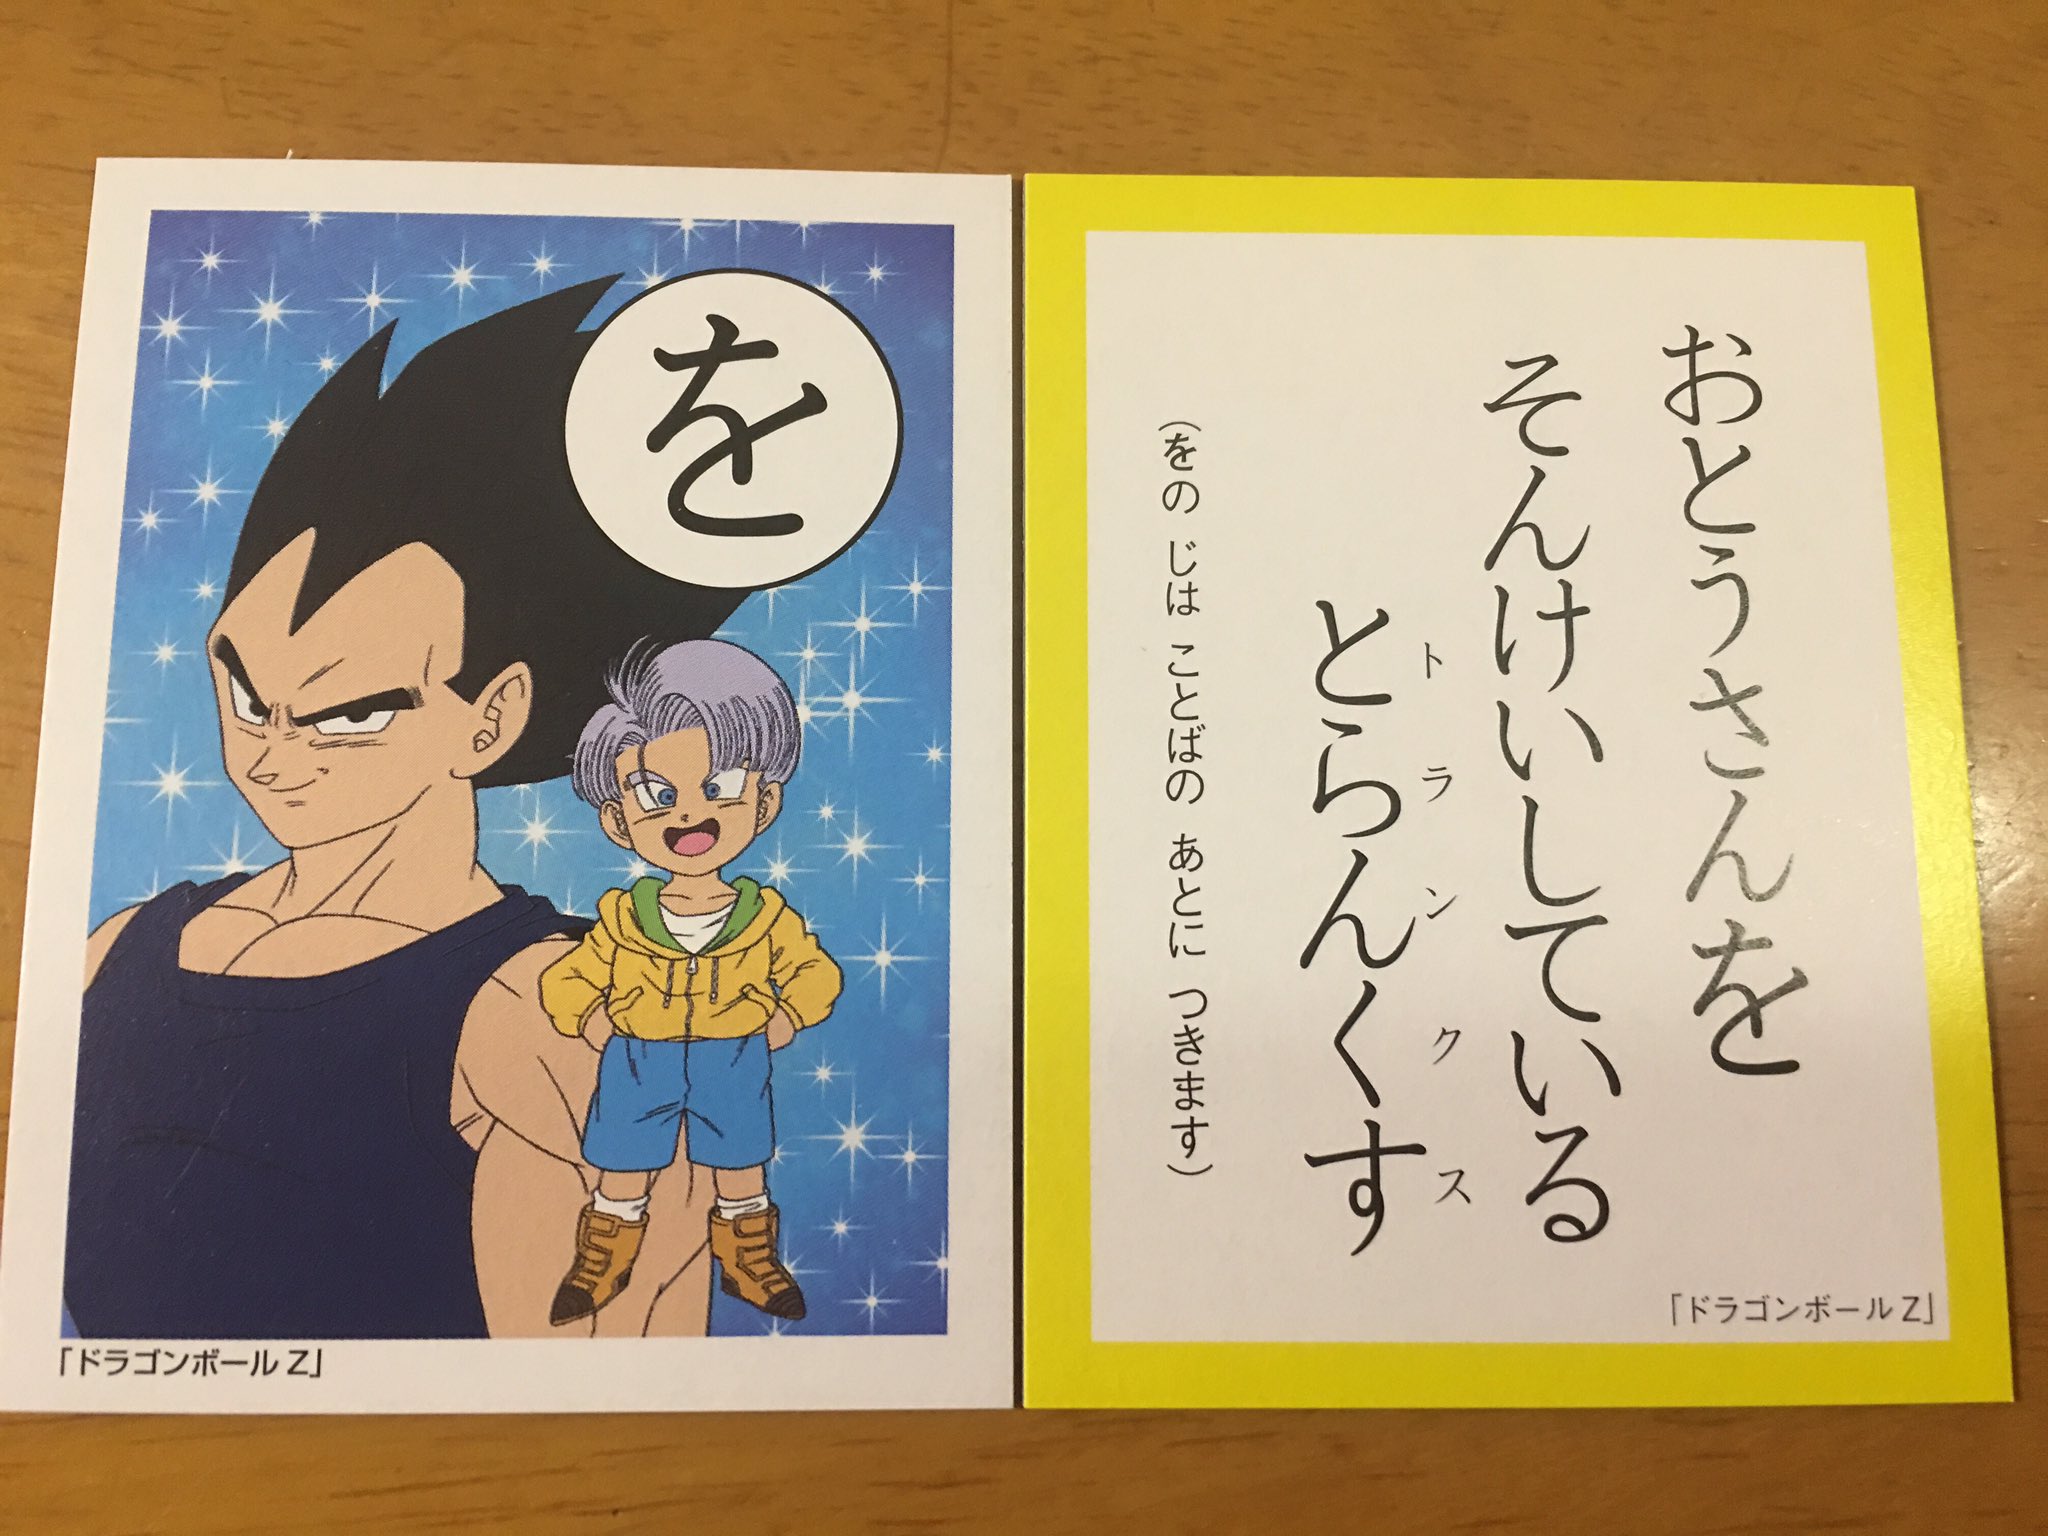 を
「ドラゴンボール Z」
おとうさんを
そんけいしている
とらんくす
トランクス
(をの じは ことばの あとに つきます)
「ドラゴンボール Z」